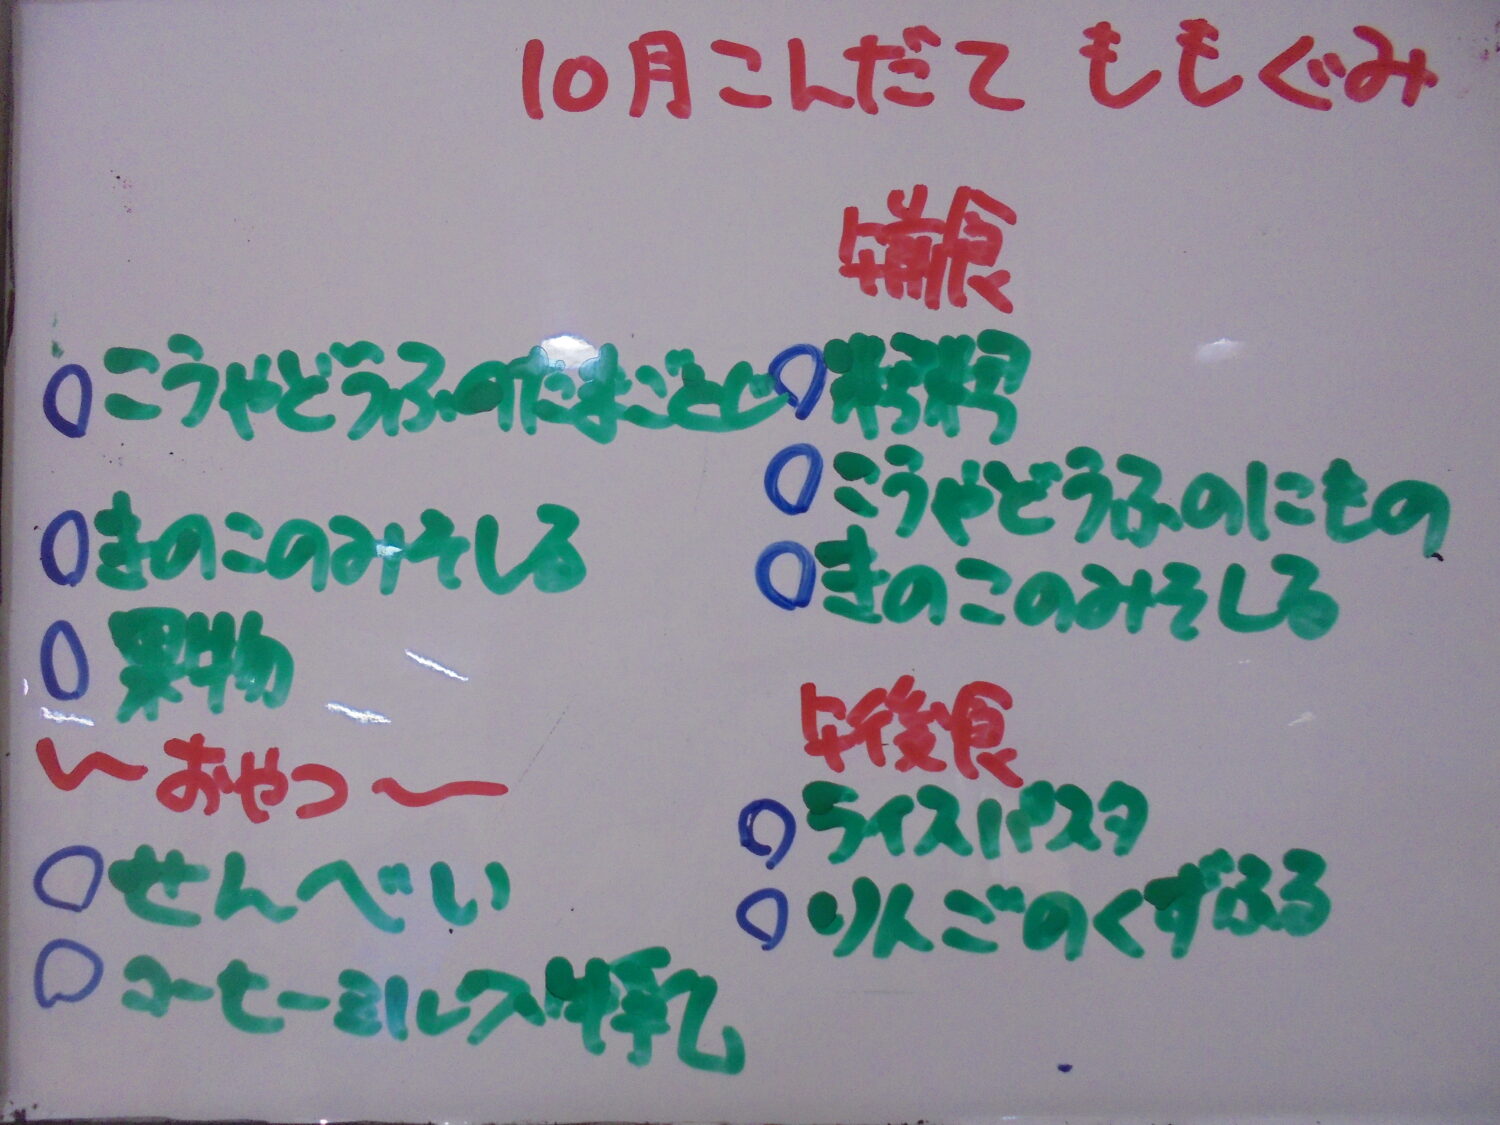 10月こんだて ももぐみ
○こうやどうふのたまごとじ
○きのこのみそしる
○果物
〜おやつ〜
○せんべい
○コーヒーミルク 牛乳
午前食
○粥
○こうやどうふのにもの
○きのこのみそしる
午後食
○ライスパスタ
○りんごのくずふる